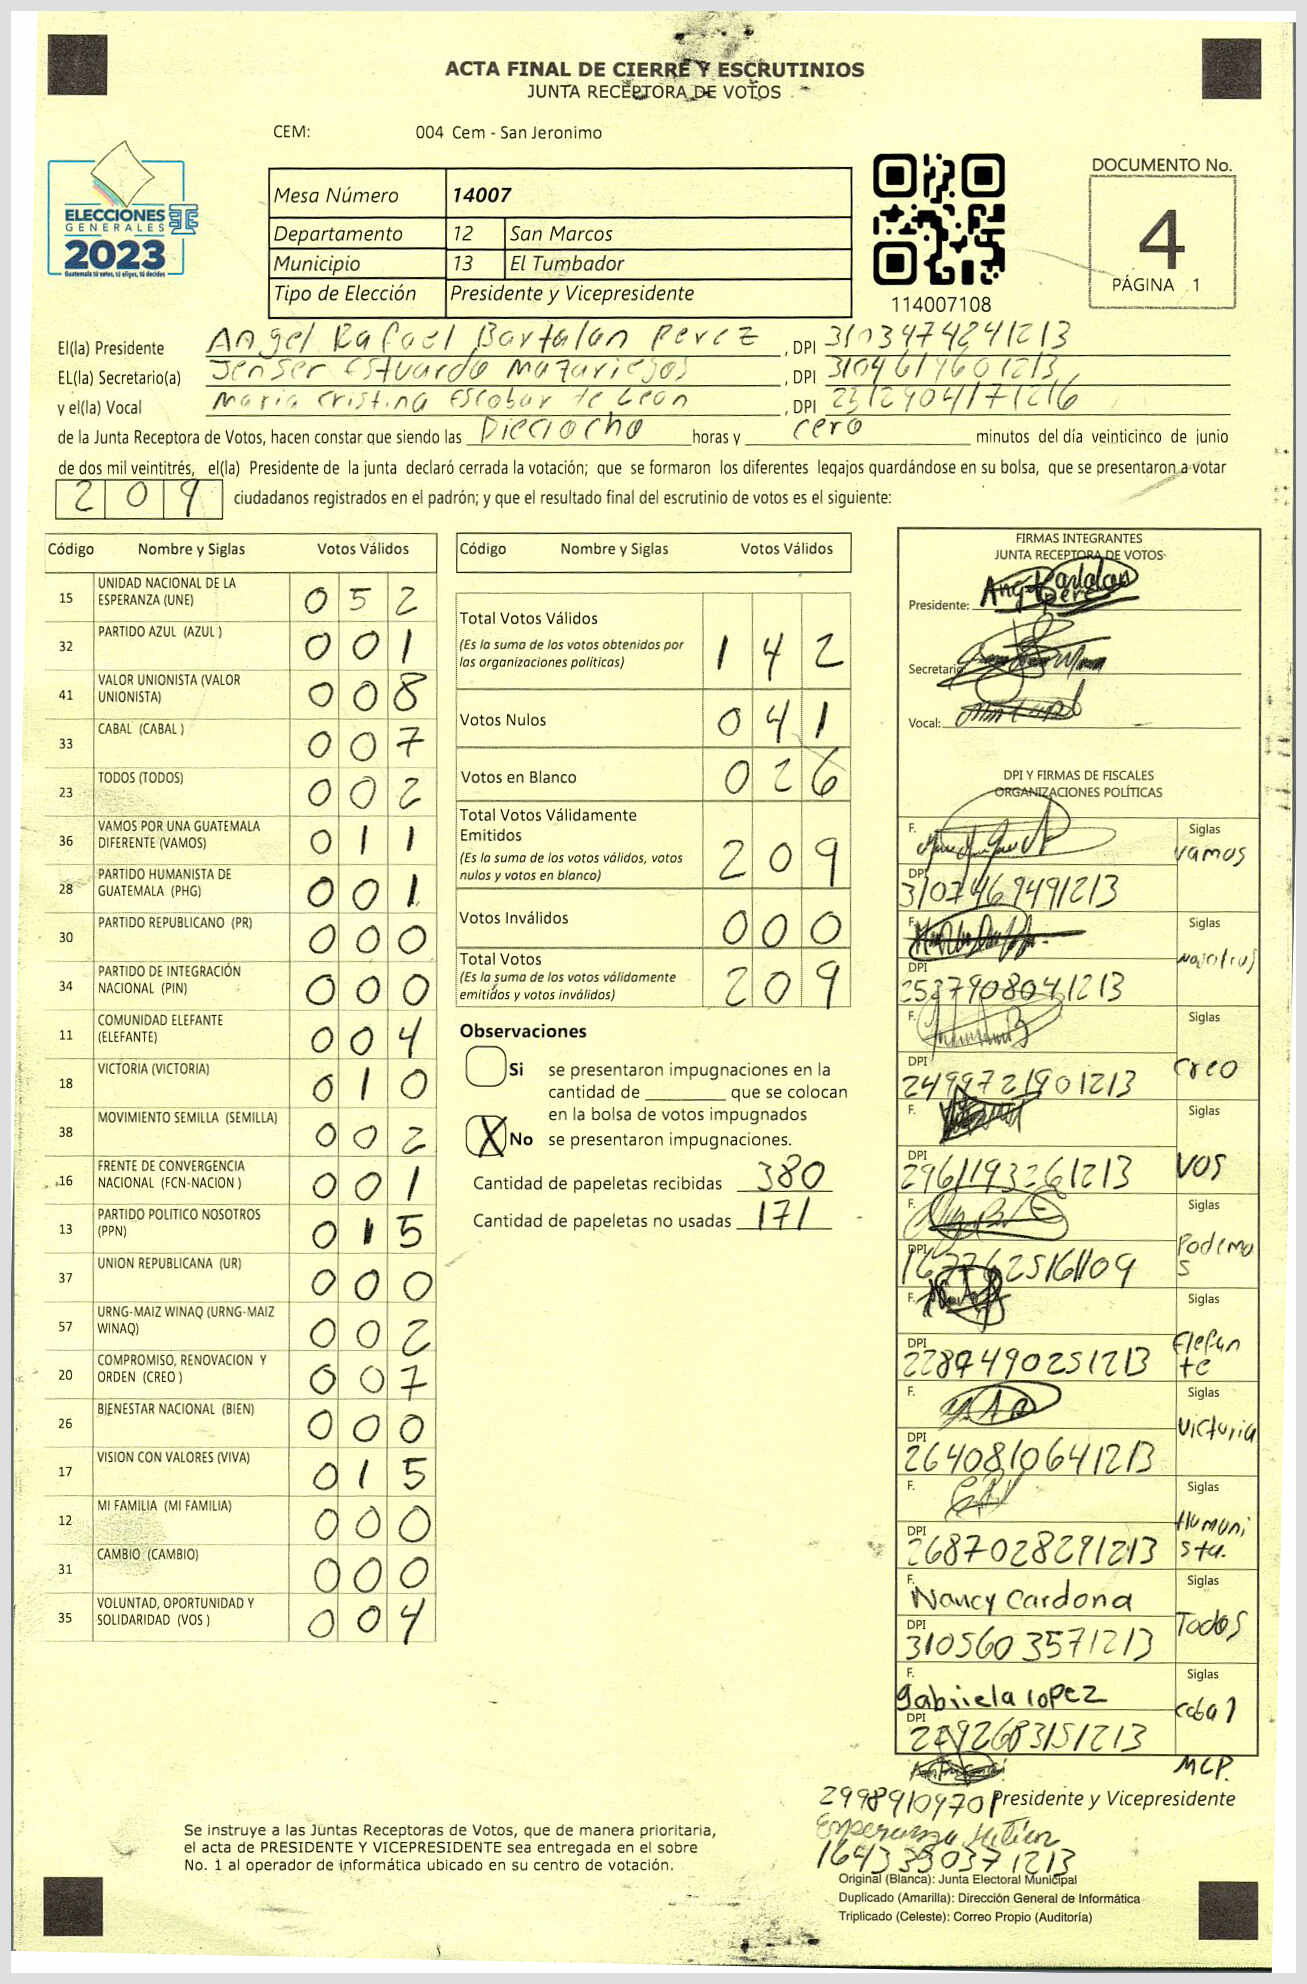 ACTA FINAL DE CIERRE Y ESCRUTINIOS
JUNTA RECEPTORA DE VOTOS
CEM: 004 Cem - San Jeronimo
ELECCIONES
GENERALES
2023
Guatemala tú votas, tú eliges, tú decides
Mesa Número 14007
Departamento 12 San Marcos
Municipio 13 El Tumbador
Tipo de Elección Presidente y Vicepresidente
114007108
DOCUMENTO No.
4
PÁGINA 1
El(la) Presidente Angel Rafael Bartalan Perez, DPI 3103474241213
EL(la) Secretario(a) Jenser Estuardo Mazariegos, DPI 3104619601213
y el(la) Vocal Maria Cristina Escobar de Leon, DPI 2312904171216
de la Junta Receptora de Votos, hacen constar que siendo las Dieciocho horas y cero minutos del día veinticinco de junio
de dos mil veintitrés, el(la) Presidente de la junta declaró cerrada la votación; que se formaron los diferentes legajos guardándose en su bolsa, que se presentaron a votar
209 ciudadanos registrados en el padrón; y que el resultado final del escrutinio de votos es el siguiente:
Código Nombre y Siglas Votos Válidos
15 UNIDAD NACIONAL DE LA ESPERANZA (UNE) 052
32 PARTIDO AZUL (AZUL ) 001
41 VALOR UNIONISTA (VALOR UNIONISTA) 008
33 CABAL (CABAL ) 007
23 TODOS (TODOS) 002
36 VAMOS POR UNA GUATEMALA DIFERENTE (VAMOS) 011
28 PARTIDO HUMANISTA DE GUATEMALA (PHG) 001
30 PARTIDO REPUBLICANO (PR) 000
34 PARTIDO DE INTEGRACIÓN NACIONAL (PIN) 000
11 COMUNIDAD ELEFANTE (ELEFANTE) 004
18 VICTORIA (VICTORIA) 010
38 MOVIMIENTO SEMILLA (SEMILLA) 002
16 FRENTE DE CONVERGENCIA NACIONAL (FCN-NACION ) 001
13 PARTIDO POLITICO NOSOTROS (PPN) 015
37 UNION REPUBLICANA (UR) 000
57 URNG-MAIZ WINAQ (URNG-MAIZ WINAQ) 002
20 COMPROMISO, RENOVACION Y ORDEN (CREO ) 007
26 BIENESTAR NACIONAL (BIEN) 000
17 VISION CON VALORES (VIVA) 015
12 MI FAMILIA (MI FAMILIA) 000
31 CAMBIO (CAMBIO) 000
35 VOLUNTAD, OPORTUNIDAD Y SOLIDARIDAD (VOS ) 004
Código Nombre y Siglas Votos Válidos
Total Votos Válidos
(Es la suma de los votos obtenidos por
las organizaciones políticas) 142
Votos Nulos 041
Votos en Blanco 026
Total Votos Válidamente
Emitidos
(Es la suma de los votos válidos, votos
nulos y votos en blanco) 209
Votos Inválidos 000
Total Votos
(Es la suma de los votos válidamente
emitidos y votos inválidos) 209
Observaciones
Si se presentaron impugnaciones en la
cantidad de ________ que se colocan
en la bolsa de votos impugnados
X No se presentaron impugnaciones.
Cantidad de papeletas recibidas 380
Cantidad de papeletas no usadas 171
FIRMAS INTEGRANTES
JUNTA RECEPTORA DE VOTOS
Presidente:
Secretario:
Vocal:
DPI Y FIRMAS DE FISCALES
ORGANIZACIONES POLÍTICAS
F. Siglas
Vamos
DPI 3107469491213
F. Siglas
DPI 2537908041213
F. Siglas
Creo
DPI 2499721901213
F. Siglas
VOS
DPI 2961193261213
F. Siglas
Podemos
DPI 1677625161109
F. Siglas
Elefante
DPI 2287490251213
F. Siglas
Victoria
DPI 2640810641213
F. Siglas
Humanista.
DPI 2687028291213
F. Nancy Cardona Siglas
Todos
DPI 3105603571213
F. gabriela lopez Siglas
cabal
DPI 2792683151213
MCP.
Presidente y Vicepresidente
1643330371213
Se instruye a las Juntas Receptoras de Votos, que de manera prioritaria,
el acta de PRESIDENTE Y VICEPRESIDENTE sea entregada en el sobre
No. 1 al operador de informática ubicado en su centro de votación.
Original (Blanca): Junta Electoral Municipal
Duplicado (Amarilla): Dirección General de Informática
Triplicado (Celeste): Correo Propio (Auditoría)